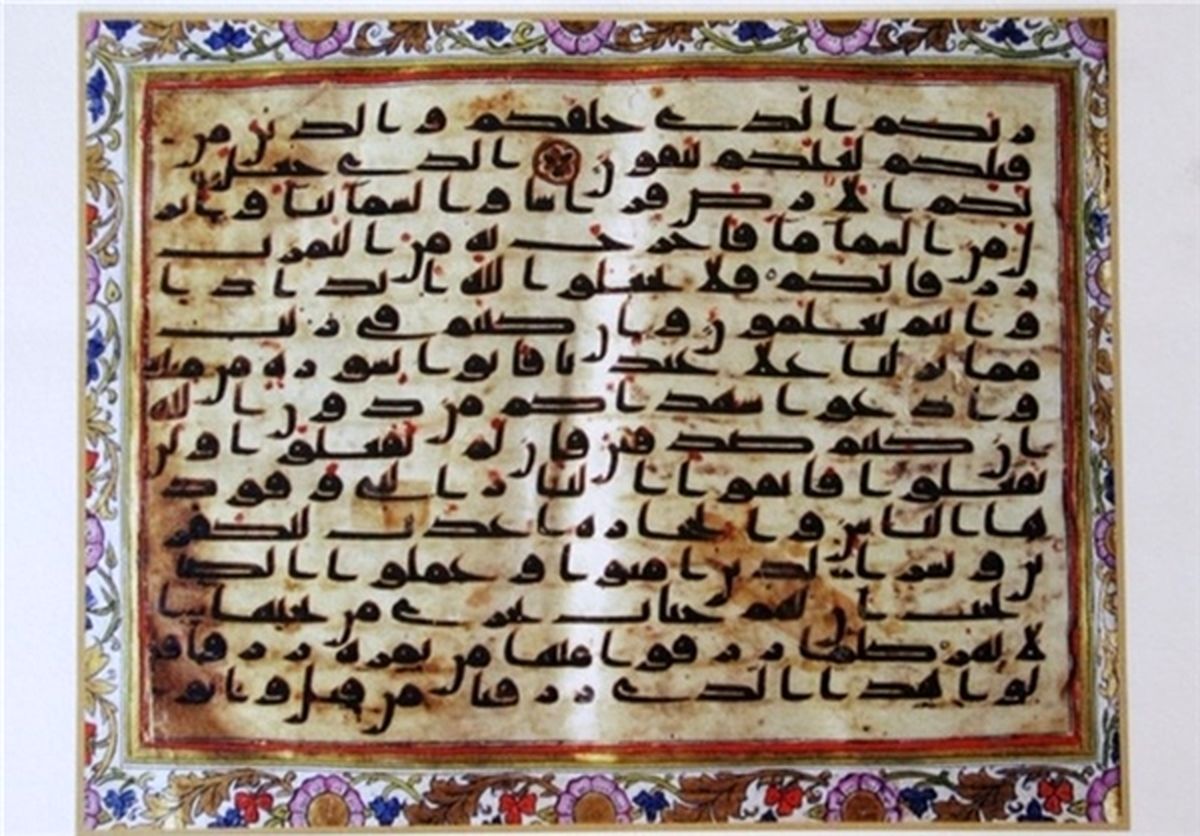 ربكم الذي خلقكم والذين من
قبلكم لعلكم تتقون الذي جعل
لكم الارض فراشا والسما بنا وانز
ل من السما ما فاخرج به من الثمرت
رزقا لكم فلا تجعلوا لله اندادا
وانتم تعلمون وان كنتم في ريب
مما نزلنا على عبدنا فاتوا بسورة من مثله
وادعوا شهداكم من دون الله
ان كنتم صدقين فان لم تفعلوا ولن
تفعلوا فاتقوا النار التي وقود
ها الناس والحجارة اعدت للكفر
ين وبشر الذين امنوا وعملوا الصا
لحت ان لهم جنات تجري من تحتها ا
لانهر كلما رزقوا منها من ثمرة رزقا قا
لوا هذا الذي رزقنا من قبل واتو